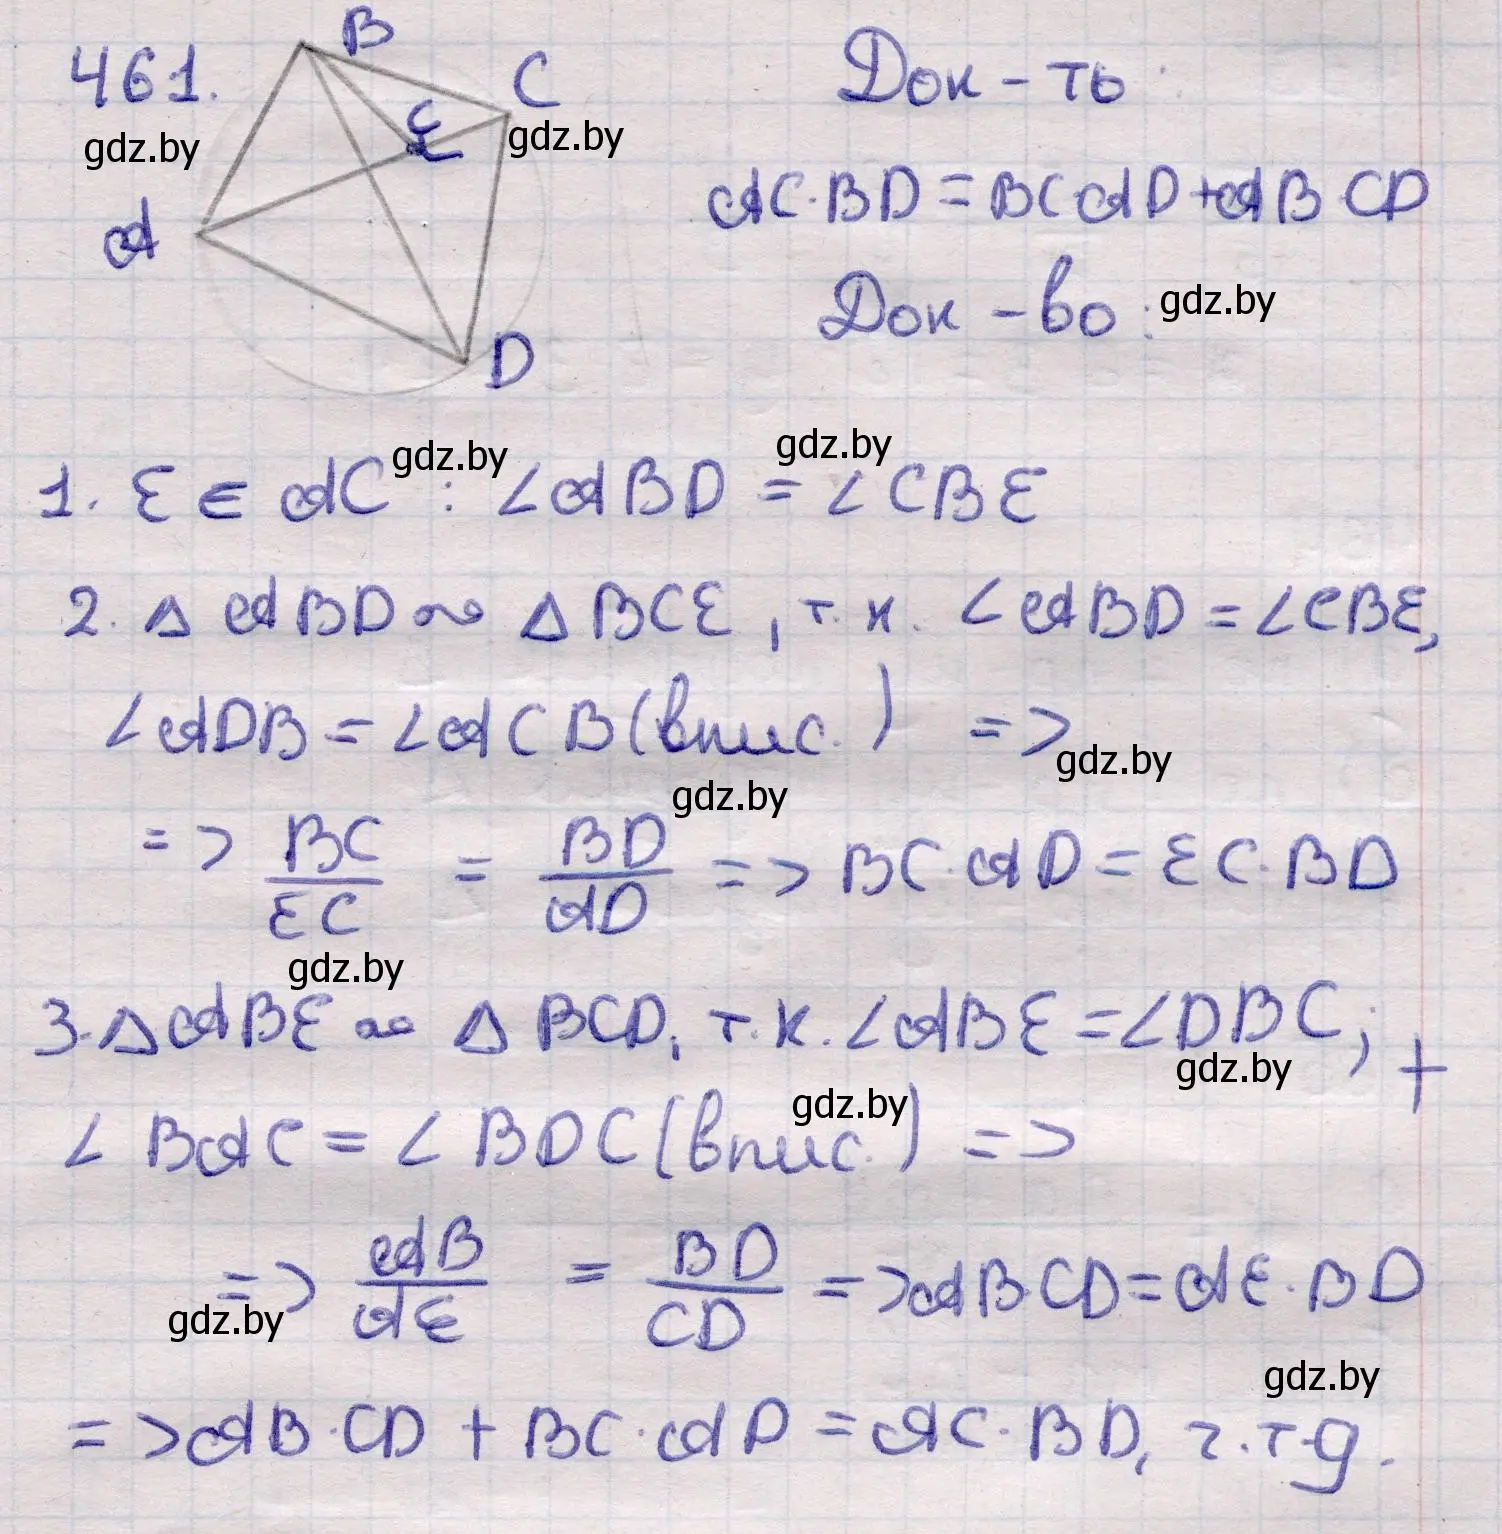 461.
B
C
E
A
D
gdz.by
gdz.by
Док-ть:
AC·BD = BC·AD + AB·CD
Док-во:
gdz.by
gdz.by
gdz.by
1. E ∈ AC : ∠ABD = ∠CBE
2. △ABD ∾ △BCE, т.к. ∠ABD = ∠CBE,
∠ADB = ∠ACB (впис.) =>
gdz.by
gdz.by
=> BC/EC = BD/AD => BC·AD = EC·BD
gdz.by
3. △ABE ∾ △BCD, т.к. ∠ABE = ∠DBC; +
gdz.by
gdz.by
∠BAC = ∠BDC (впис.) =>
=> AB/AE = BD/CD => AB·CD = AE·BD
gdz.by
gdz.by
=> AB·CD + BC·AD = AC·BD, ч.т.д.